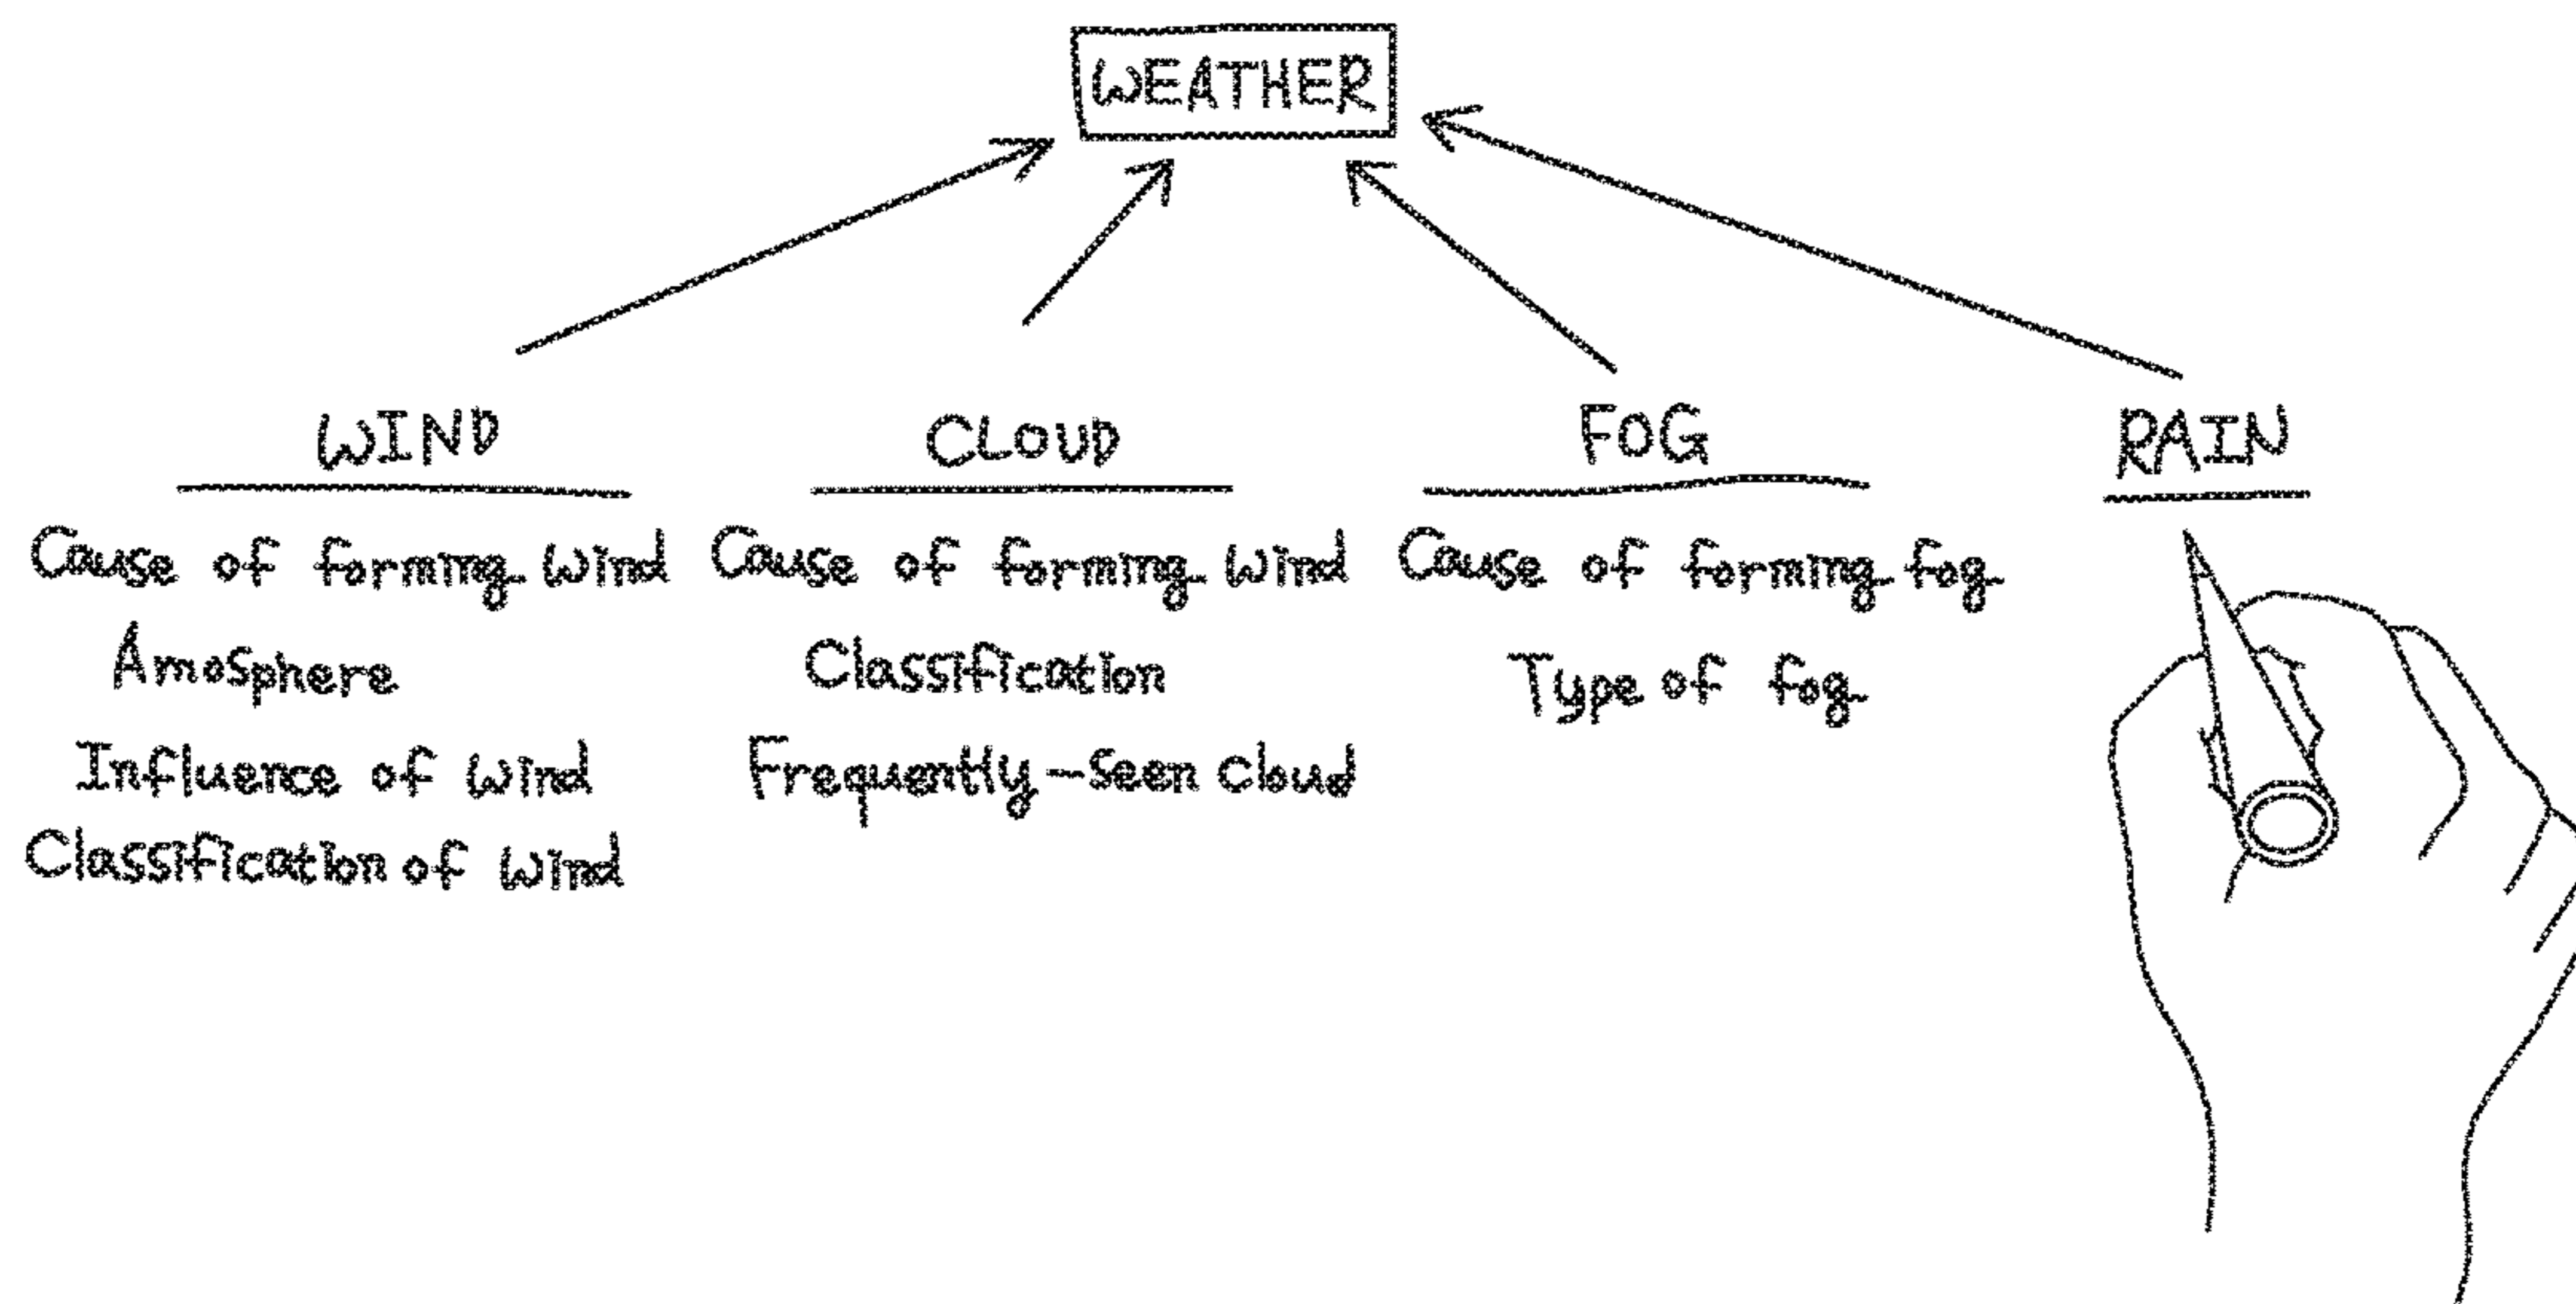 WEATHER
WIND
Cause of forming Wind
Amosphere
Influence of Wind
Classification of Wind
CLOUD
Cause of forming Wind
Classification
Frequently-Seen Cloud
FOG
Cause of forming fog
Type of fog
RAIN